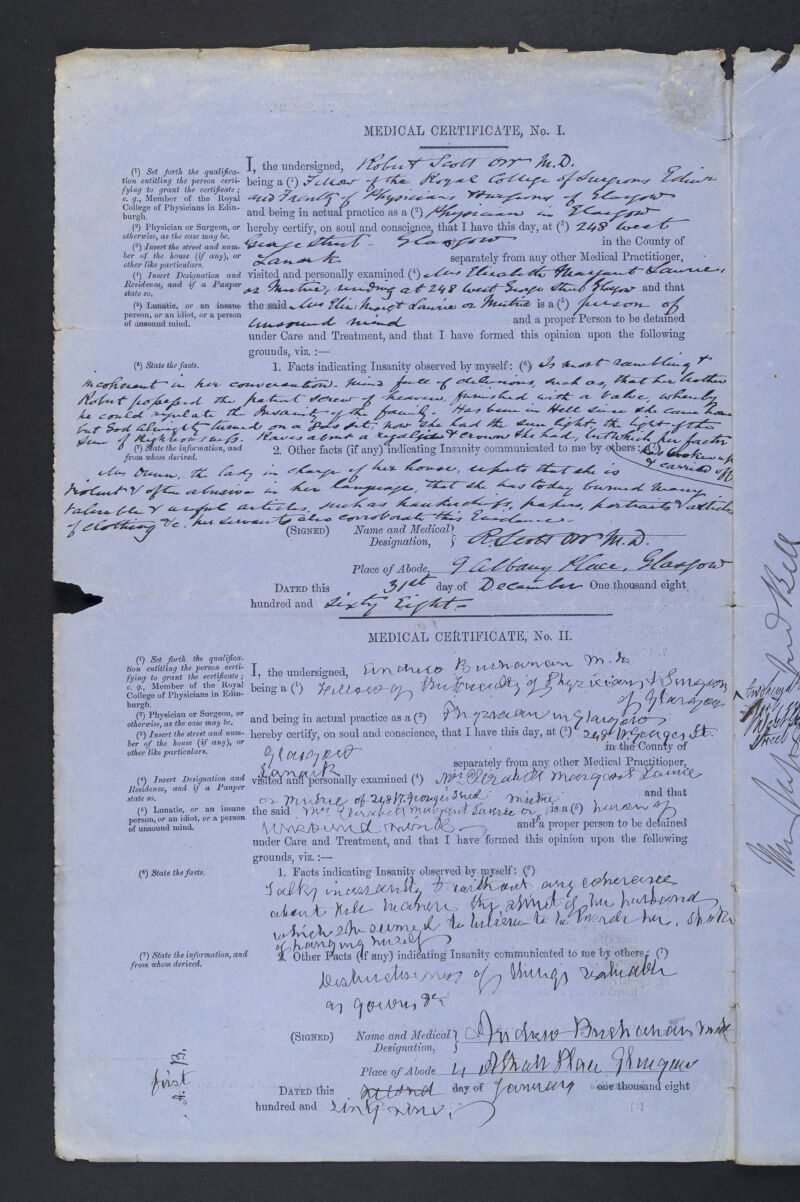 MEDICAL CERTIFICATE, No. I.
(1) Set forth the qualifica-
tion entitling the person certi-
fying to grant the certificate;
e. g., Member of the Royal
College of Physicians in Edin-
burgh.
(2) Physician or Surgeon, or
otherwise, as the case may be.
(3) Insert the street and num-
ber of the house (if any), or
other like particulars.
(4) Insert Designation and
Residence, and if a Pauper
state so.
(5) Lunatic, or an insane
person, or an idiot, or a person
of unsound mind.
I, the undersigned, Robert Scott Orr M.D.
being a (1) Fellow of the Royal College of Surgeons Edinr
and Faculty of Physicians & Surgeons of Glasgow
and being in actual practice as a (2) Physician in Glasgow
hereby certify, on soul and conscience, that I have this day, at (3) 248 West
George Street Glasgow in the County of
Lanark separately from any other Medical Practitioner,
visited and personally examined (4) Mrs Elizabeth Margaret Laurie,
or Mutrie, residing at 248 West George Street Glasgow and that
the said Mrs Eliz: Margt Laurie or Mutrie is a (5) person of
unsound mind and a proper Person to be detained
under Care and Treatment, and that I have formed this opinion upon the following
grounds, viz. :—
(6) State the facts.
1. Facts indicating Insanity observed by myself: (6) Is most rambling &
incoherent in her conversation. Mind full of delusions, such as, that her brother
Robert possessed the patent screw of heaven, furnished with a valve, whereby
he could regulate the Insanity of the family. Has been in Hell since she came home
but God Almighty turned on a Gas Jet. now she had the sun light, the light of the
Sun of Righteousness. Raves about a regalia & Crown she had, but which her factor
had broken up
& carried off
(7) State the information, and
from whom derived.
2. Other facts (if any) indicating Insanity communicated to me by others: (7)
Mrs the lady in charge of her house, reports that she is
violent & often abusive in her language, that she has today burned many
valuable & useful articles, such as handkerchiefs, papers, portraits & articles
of clothing &c. her servants also corroborate this Evidence.
(SIGNED) Name and Medical Designation, R. Scott Orr M.D.
Place of Abode, 7 Albany Place, Glasgow
DATED this 31st day of December One thousand eight
hundred and Sixty Eight.
MEDICAL CERTIFICATE, No. II.
(1) Set forth the qualifica-
tion entitling the person certi-
fying to grant the certificate;
e. g., Member of the Royal
College of Physicians in Edin-
burgh.
(2) Physician or Surgeon, or
otherwise, as the case may be.
(3) Insert the street and num-
ber of the house (if any), or
other like particulars.
(4) Insert Designation and
Residence, and if a Pauper
state so.
(5) Lunatic, or an insane
person, or an idiot, or a person
of unsound mind.
I, the undersigned, Andrew Buchanan M.D.
being a (1) Fellow of the Faculty of Physicians & Surgeons
of Glasgow
and being in actual practice as a (2) Physician in Glasgow
hereby certify, on soul and conscience, that I have this day, at (3) 248 W. George St.
Glasgow in the County of
Lanark separately from any other Medical Practitioner,
visited and personally examined (4) Mrs Elizabeth Margaret Laurie
or Mutrie of 248 W. George Street and that
the said Mrs Elizabeth Margaret Laurie or Mutrie is a (5) person of
unsound mind and a proper person to be detained
under Care and Treatment, and that I have formed this opinion upon the following
grounds, viz. :—
(6) State the facts.
1. Facts indicating Insanity observed by myself: (6)
Talks incessantly & without any coherence
about the spirit of her husband
which she seemed to believe to be inside her. Spoke
of hanging herself
(7) State the information, and
from whom derived.
2. Other Facts (if any) indicating Insanity communicated to me by others; (7)
Destructiveness of things valuable
as gowns &c
(SIGNED) Name and Medical Designation, Andrew Buchanan M.D.
Place of Abode 4 Athole Place Glasgow
DATED this second day of January one thousand eight
hundred and sixty nine.
first
A. B.